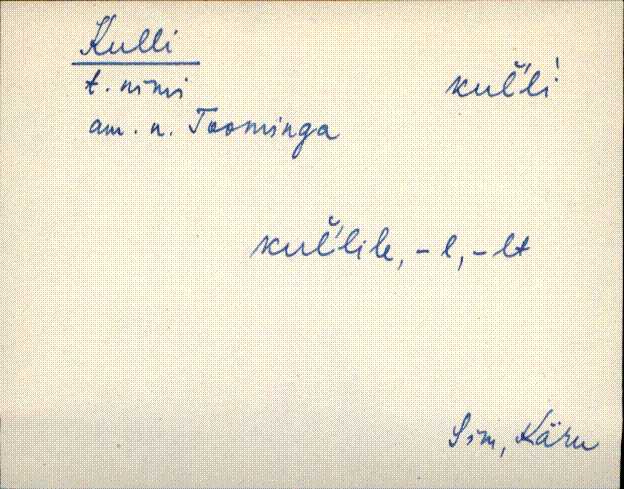 Kulli
t. nimi
kul̆'li
am. n. Toominga
kul̆'lile, -l, -lt
Sim, Käru